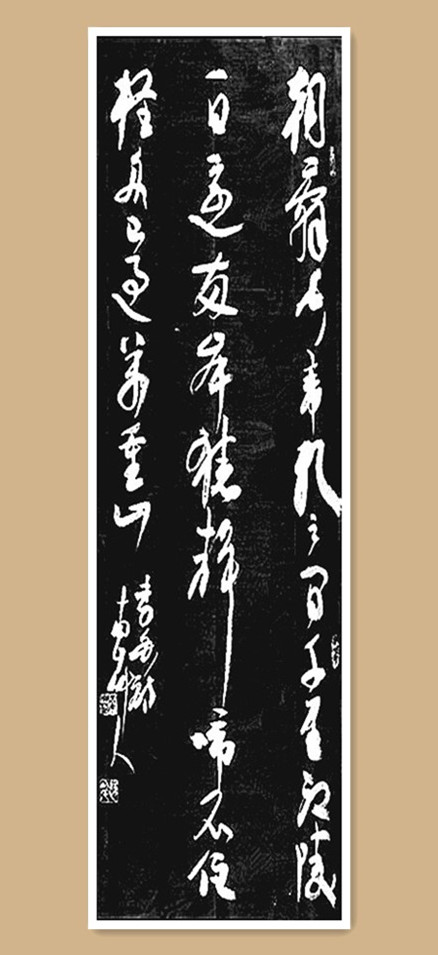 朝辭白帝彩云間千里江陵
一日還兩岸猿聲啼不住
輕舟已過萬重山